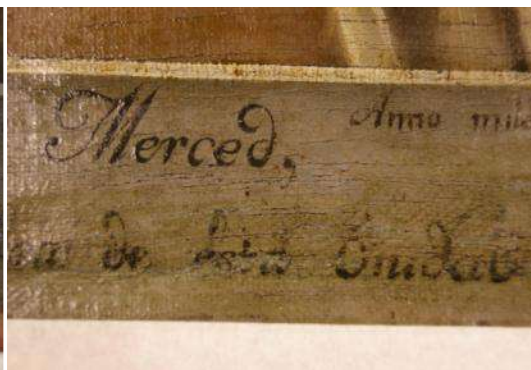 Merced, Anno
de esta Ciudad